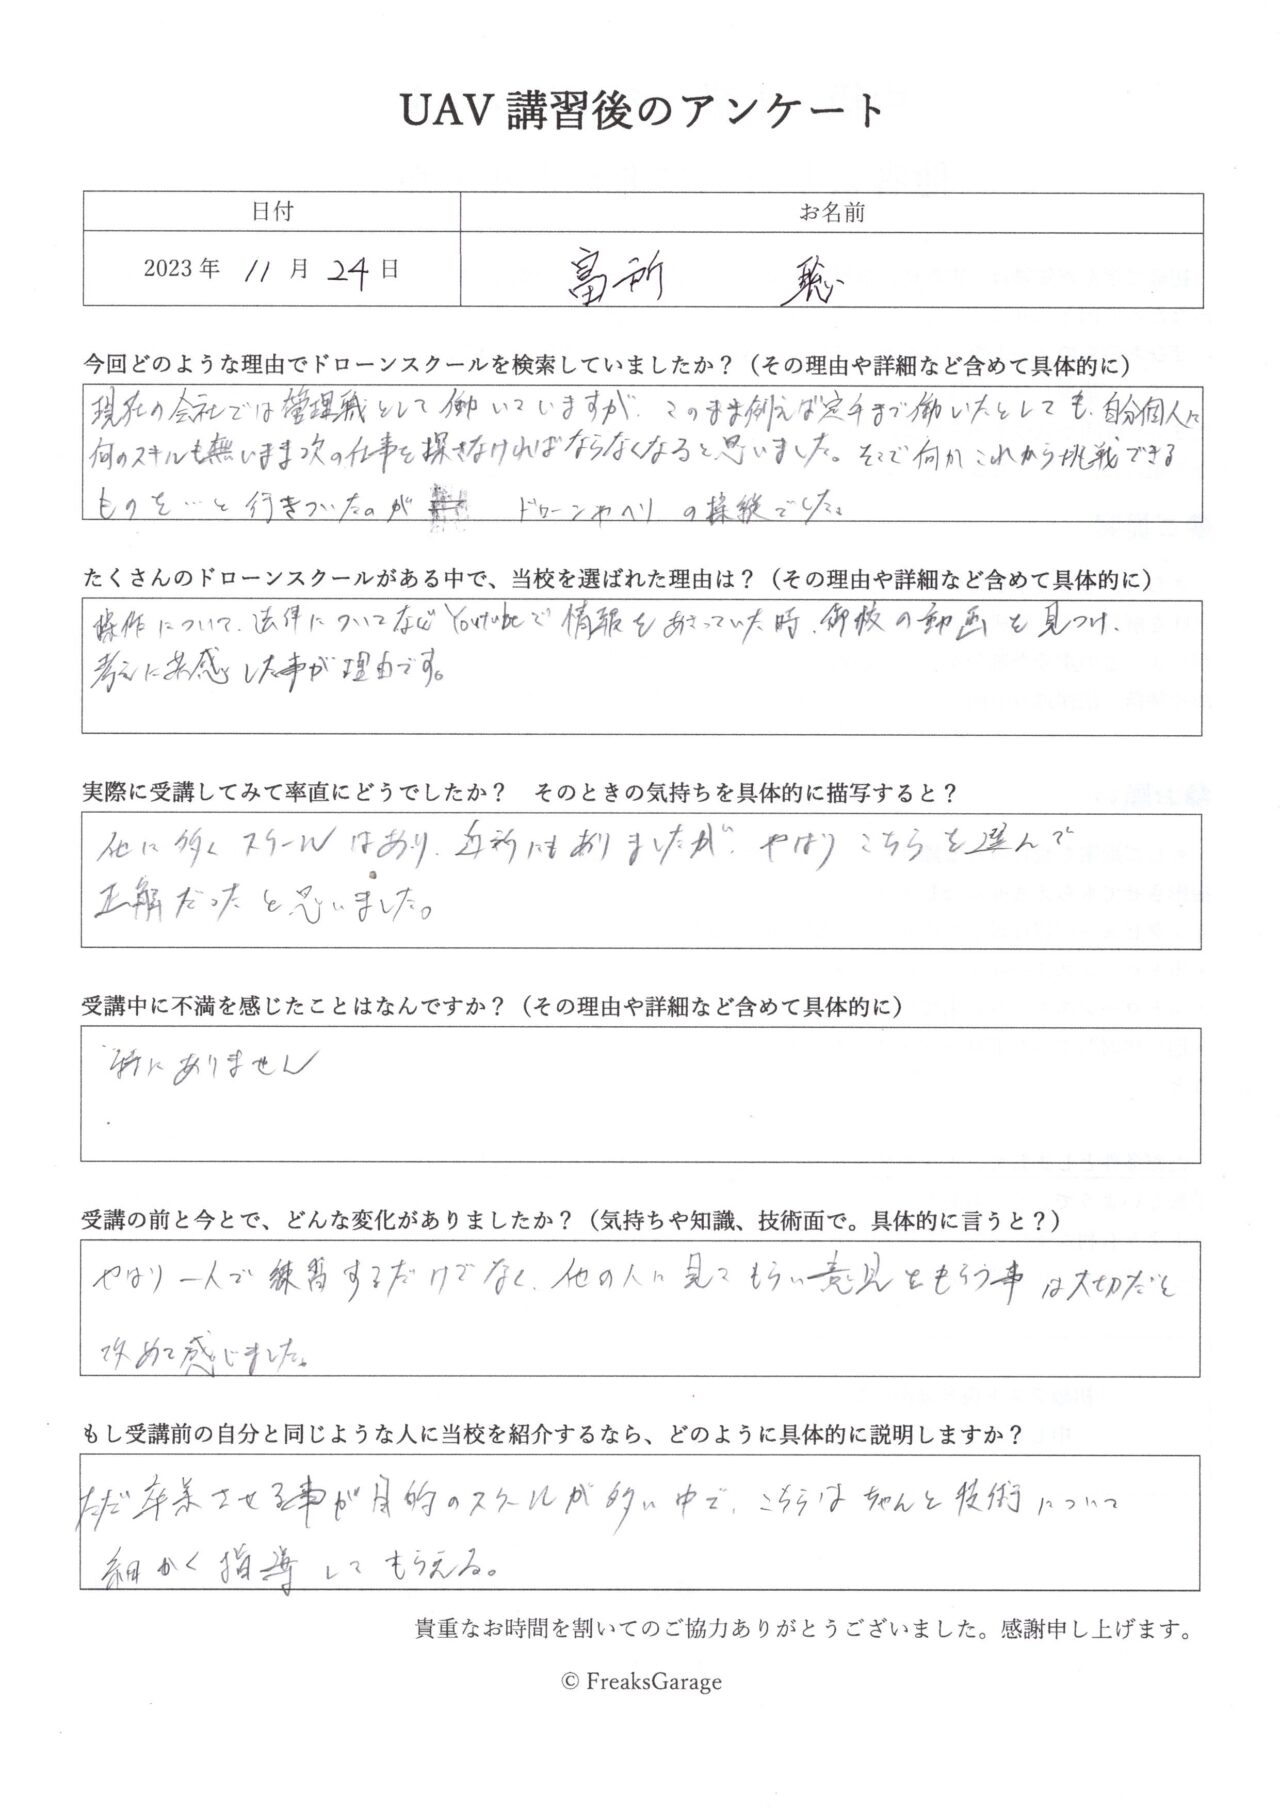 UAV 講習後のアンケート
日付 お名前
2023 年 11 月 24 日 富所 聡
今回どのような理由でドローンスクールを検索していましたか？（その理由や詳細など含めて具体的に）
現在の会社では管理職として働いていますが、このまま例えば定年まで働いたとしても、自分個人に
何のスキルも無いまま次の仕事を探さなければならなくなると思いました。そこで何かこれから挑戦できる
ものを…と行きついたのが ドローンやヘリの操縦でした。
たくさんのドローンスクールがある中で、当校を選ばれた理由は？（その理由や詳細など含めて具体的に）
操作について、法律についてなど Youtubeで情報をあさっていた時、御校の動画を見つけ、
考えに共感した事が理由です。
実際に受講してみて率直にどうでしたか？　そのときの気持ちを具体的に描写すると？
他に多くスクールはあり、近所にもありましたが、やはりこちらを選んで
正解だったと思いました。
受講中に不満を感じたことはなんですか？（その理由や詳細など含めて具体的に）
特にありません
受講の前と今とで、どんな変化がありましたか？（気持ちや知識、技術面で。具体的に言うと？）
やはり一人で練習するだけでなく、他の人に見てもらい意見をもらう事は大切だと
改めて感じました。
もし受講前の自分と同じような人に当校を紹介するなら、どのように具体的に説明しますか？
ただ卒業させる事が目的のスクールが多い中で、こちらはちゃんと技術について
細かく指導してもらえる。
貴重なお時間を割いてのご協力ありがとうございました。感謝申し上げます。
© FreaksGarage